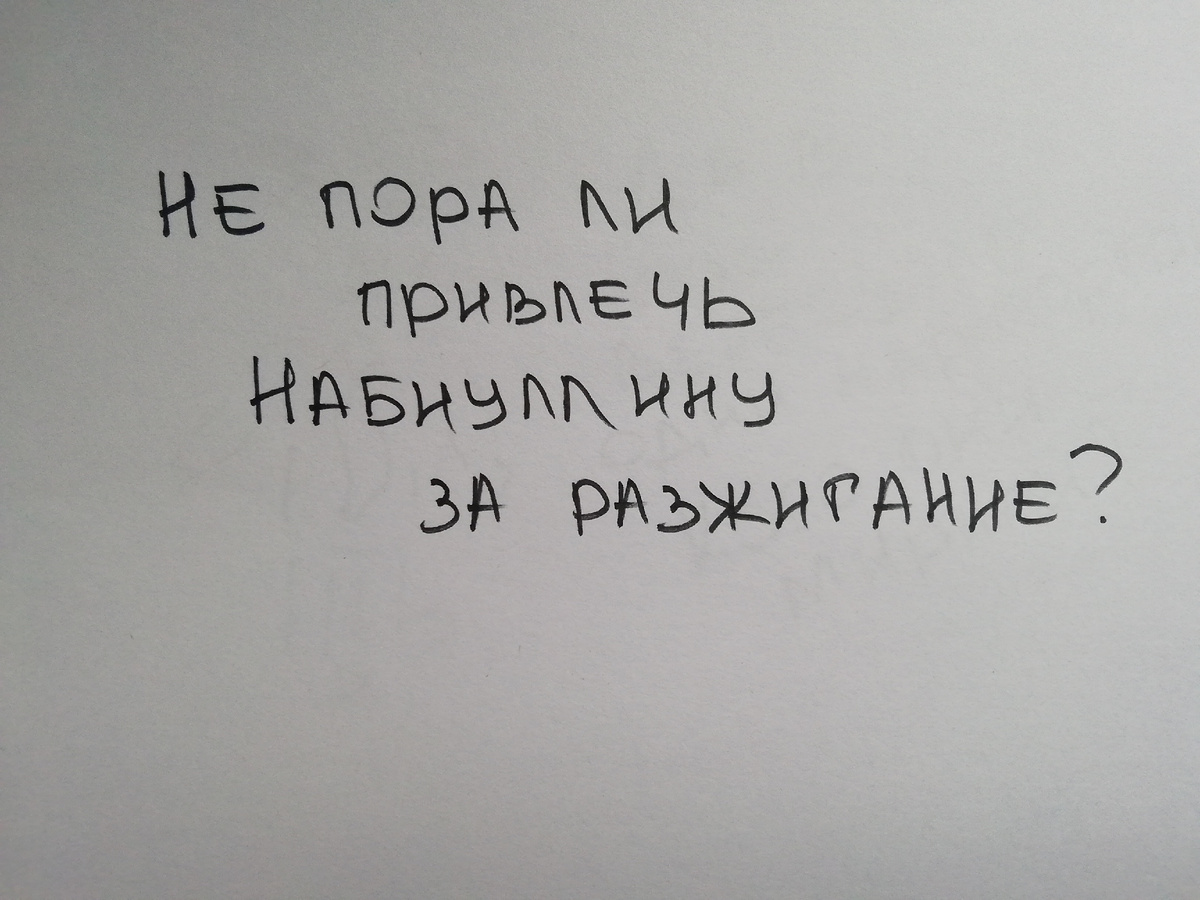 НЕ ПОРА ЛИ
ПРИВЛЕЧЬ
НАБИУЛЛИНУ
ЗА РАЗЖИГАНИЕ?